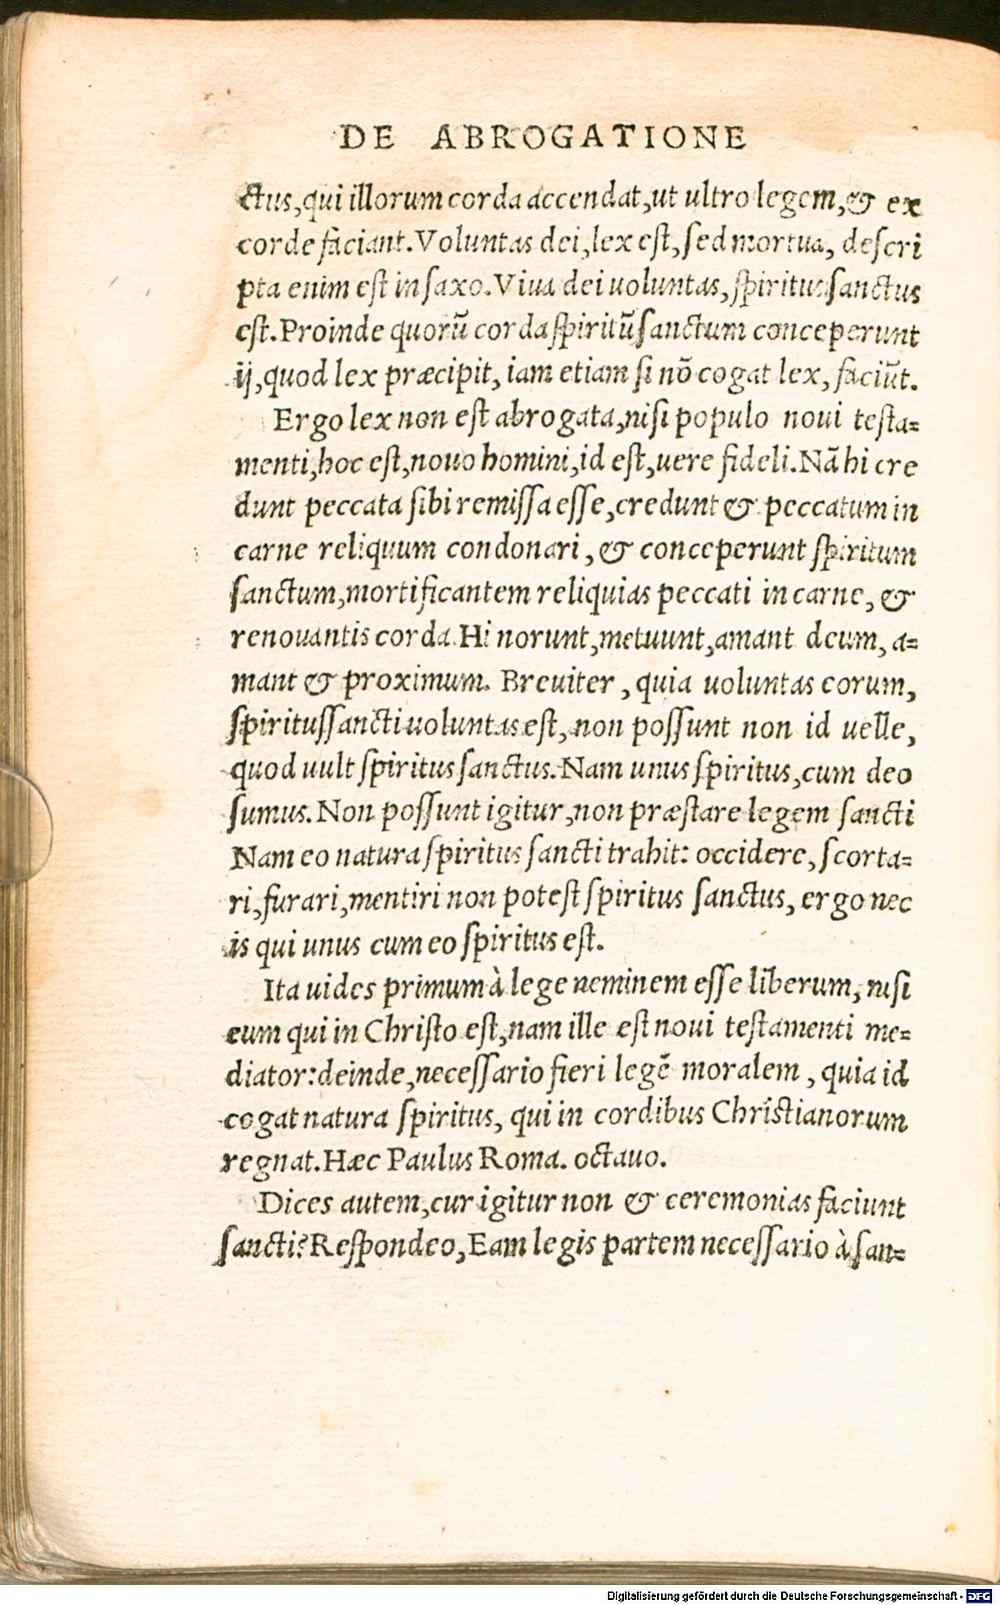 DE ABROGATIONE
ctus, qui illorum corda accendat, ut ultro legem, & ex
corde faciant. Voluntas dei, lex est, sed mortua, descri
pta enim est in saxo. Viua dei uoluntas, spiritus sanctus
est. Proinde quorū corda spiritū sanctum conceperunt
ij, quod lex præcipit, iam etiam si nō cogat lex, faciūt.
Ergo lex non est abrogata, nisi populo noui testa=
menti, hoc est, nouo homini, id est, uere fideli. Nā hi cre
dunt peccata sibi remissa esse, credunt & peccatum in
carne reliquum condonari, & conceperunt spiritum
sanctum, mortificantem reliquias peccati in carne, &
renouantis corda. Hi norunt, metuunt, amant deum, a=
mant & proximum. Breuiter, quia uoluntas eorum,
spiritussancti uoluntas est, non possunt non id uelle,
quod uult spiritus sanctus. Nam unus spiritus, cum deo
sumus. Non possunt igitur, non præstare legem sancti
Nam eo natura spiritus sancti trahit: occidere, scorta=
ri, furari, mentiri non potest spiritus sanctus, ergo nec
is qui unus cum eo spiritus est.
Ita uides primum à lege neminem esse liberum, nisi
eum qui in Christo est, nam ille est noui testamenti me=
diator: deinde, necessario fieri legē moralem, quia id
cogat natura spiritus, qui in cordibus Christianorum
regnat. Hæc Paulus Roma. octauo.
Dices autem, cur igitur non & ceremonias faciunt
sancti? Respondeo, Eam legis partem necessario à san=
Digitalisierung gefördert durch die Deutsche Forschungsgemeinschaft - DFG